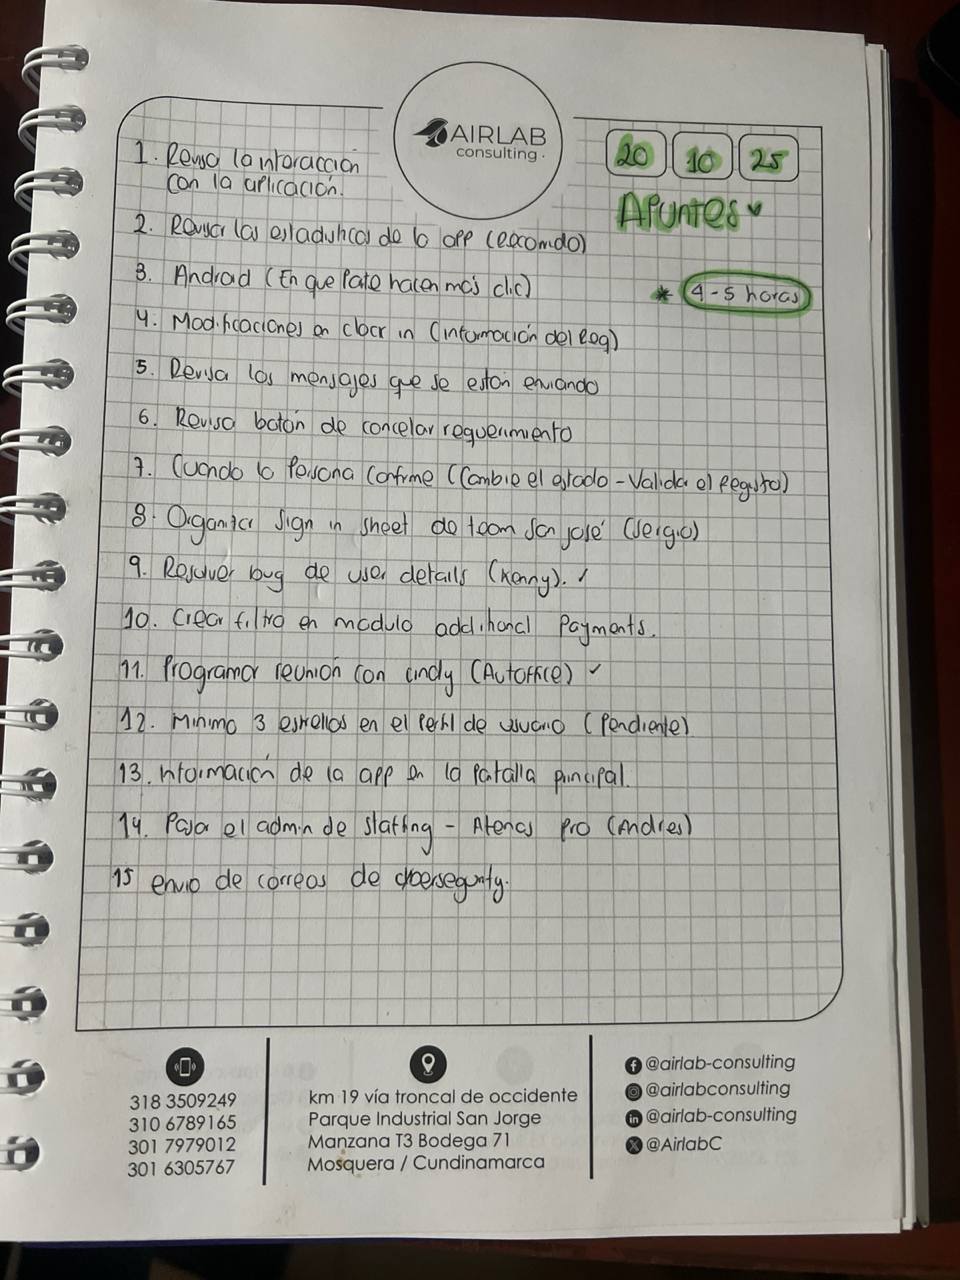 AIRLAB
consulting.
20 10 25
Apuntes
* 4-5 horas
1. Revisa la interacción
con la aplicación.
2. Revisar las estadisticas de la app (recorrido)
3. Android (En que parte hacen más clic)
4. Modificaciones en clock in (información del Reg)
5. Revisa los mensajes que se están enviando
6. Revisa botón de cancelar requerimiento
7. Cuando la Persona Confirme (Cambie el estado - Valida el Registro)
8. Organizar sign in sheet de team san josé (Sergio)
9. Resolver bug de user details (Kenny). ✓
10. Crear filtro en modulo additional Payments.
11. Programar reunión con cindy (Autoffice) ✓
12. Minimo 3 estrellas en el Perfil de usuario (Pendiente)
13. información de la app en la Pantalla principal.
14. Pasar el admin de staffing - Atenas Pro (Andres)
15 envio de correos de
318 3509249
310 6789165
301 7979012
301 6305767
km 19 vía troncal de occidente
Parque Industrial San Jorge
Manzana T3 Bodega 71
Mosquera / Cundinamarca
@airlab-consulting
@airlabconsulting
@airlab-consulting
@AirlabC